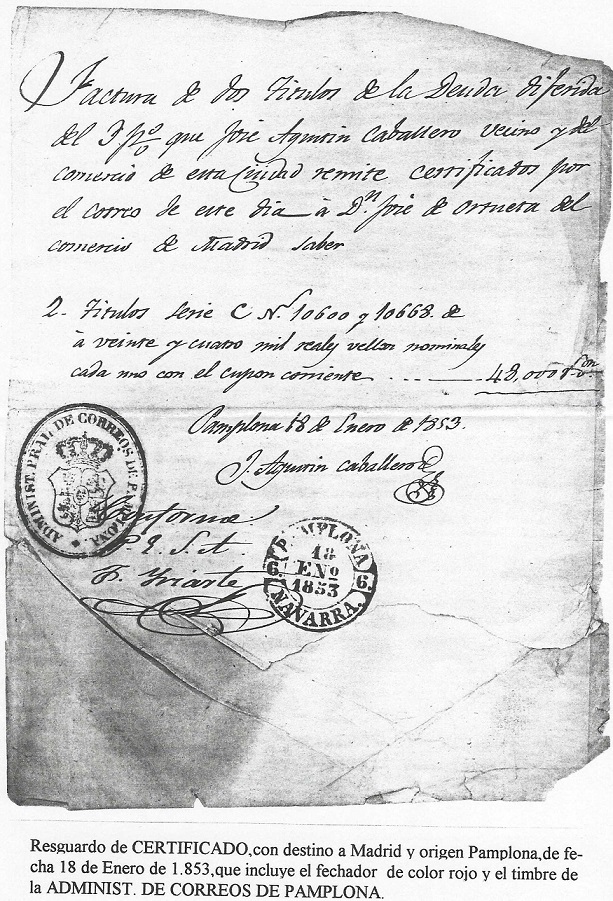 Factura de dos Titulos de la Deuda diferida
del 3 p% que José Agustin Caballero vecino y del
comercio de esta Ciudad remite certificados por
el correo de este dia à Dn. José de Orrueta del
comercio de Madrid saber
2. Titulos serie C Nº 10600 y 10668. de
à veinte y cuatro mil reales vellon nominales
cada uno con el cupon corriente .. .. — 48,000 rs. von
Pamplona 18 de Enero de 1853.
J. Agustin Caballero
ADMINIST. PRAL. DE CORREOS DE PAMPLONA
Conforme
P. E. S. A.
F. Yriarte
PAMPLONA
18
ENº
1853
6. 6.
NAVARRA.
Resguardo de CERTIFICADO,con destino a Madrid y origen Pamplona,de fe-
cha 18 de Enero de 1.853,que incluye el fechador de color rojo y el timbre de
la ADMINIST. DE CORREOS DE PAMPLONA.